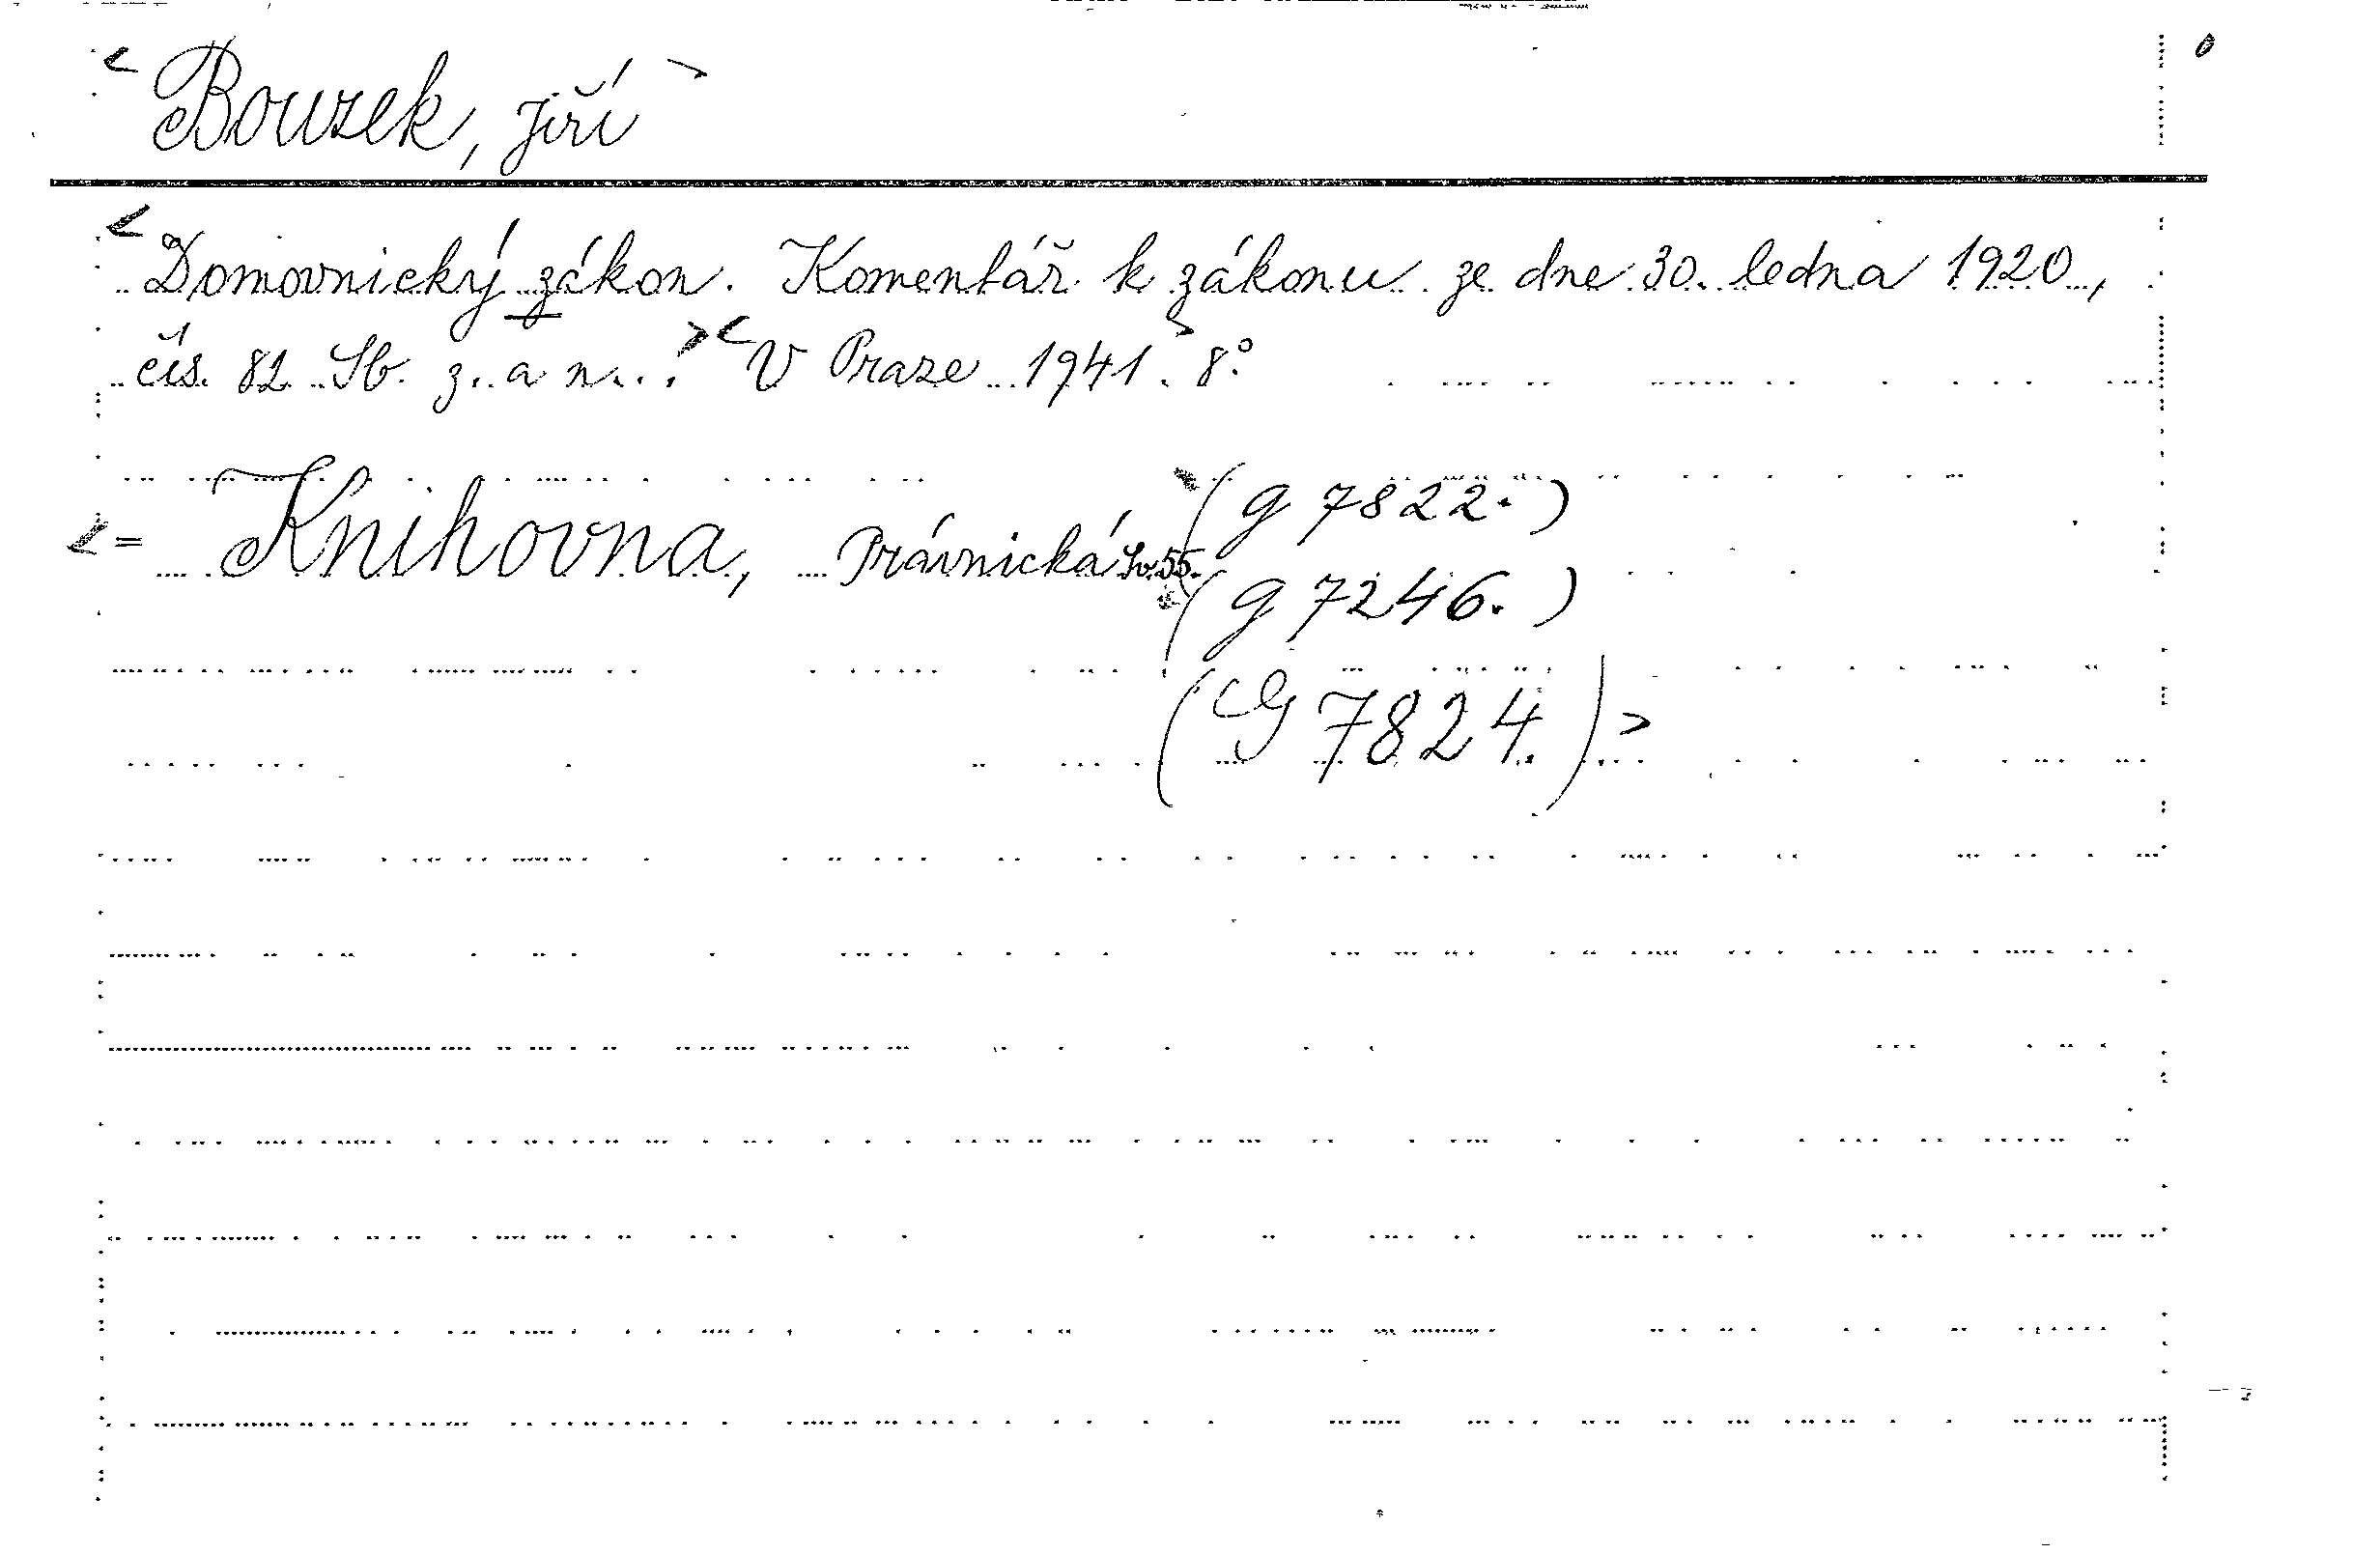 < Bouzek, Jiří >
< Domovnický zákon. Komentář k zákonu ze dne 30. ledna 1920,
čís. 82 Sb. z. a n... > < V Praze 1941. > 8°.
< = Knihovna, Právnická Sv. 55.
(G 7822.)
(G 7246.)
(G 7824.) >